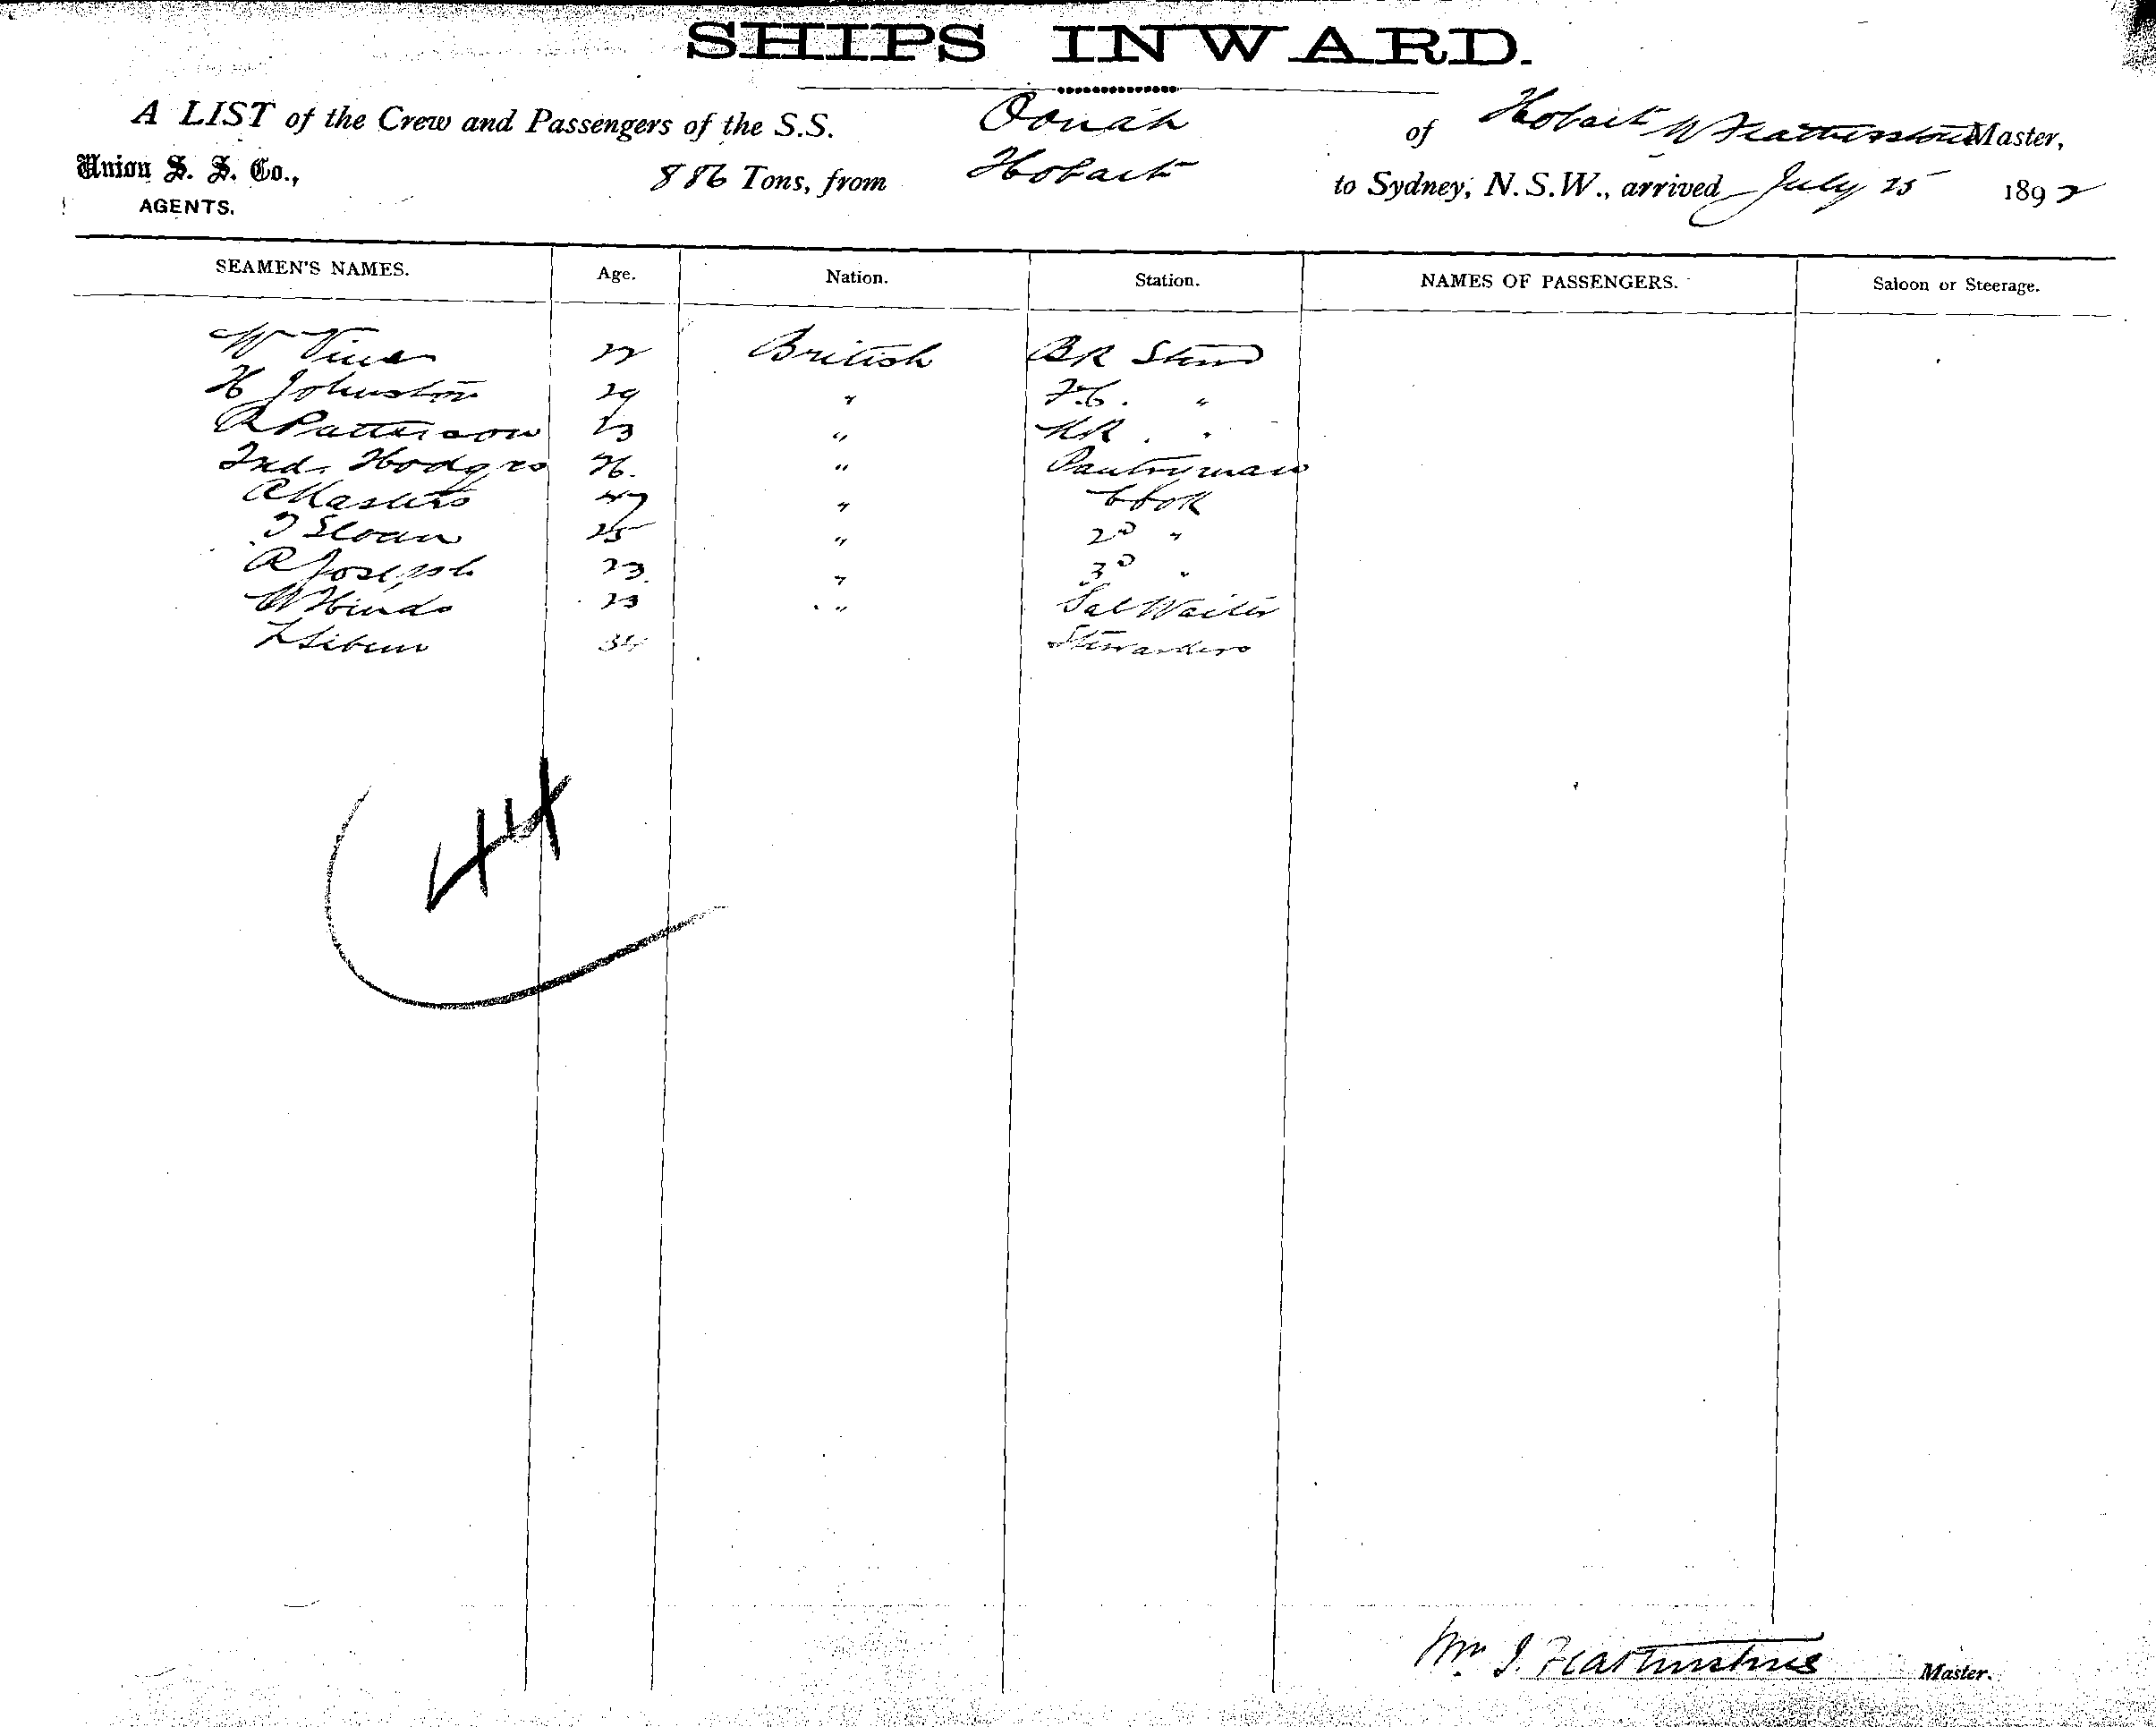 SHIPS INWARD.
A LIST of the Crew and Passengers of the S.S. Oonah of Hobart W Featherstone Master,
Union S. S. Co., 886 Tons, from Hobart to Sydney, N.S.W., arrived July 25 1892
AGENTS.
SEAMEN'S NAMES. Age. Nation. Station. NAMES OF PASSENGERS. Saloon or Steerage.
W Vine 22 British BR Stewd
H Johnston 29 " F.C. "
R Patterson 23 "
Fred. Hodges 26. " Pantryman
Masters 47 " Cook
T Sloan 25 " 2D "
R Joseph 23. " 3D "
W Hinds 23 " Sal Waiter
34 Stewardess
44
Wm J. Featherstone Master.